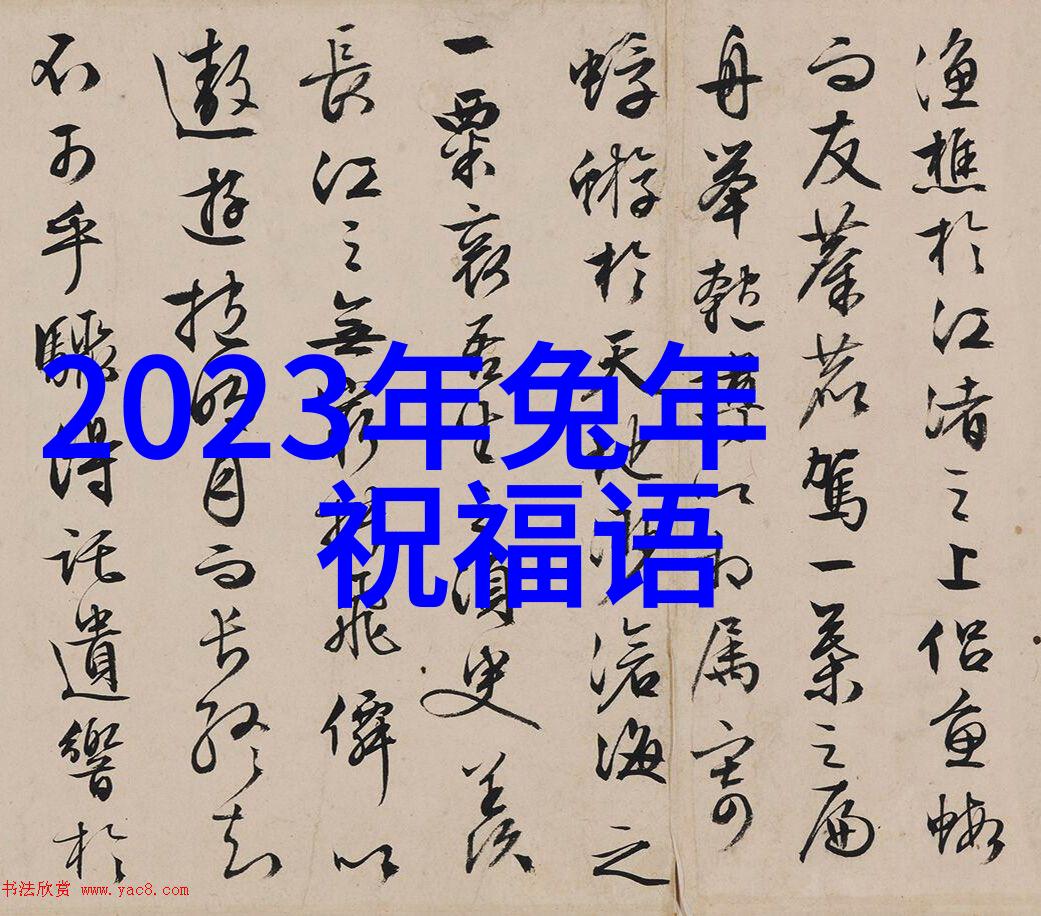 漁樵於江渚之上侶魚蝦
而友麋鹿駕一葉之扁
舟舉匏樽以相属寄
蜉蝣於天地渺滄海之
一粟哀吾生之須臾羨
長江之無窮挾飛僊以
遨遊抱明月而長終知
不可乎驟得託遺響於
2023年兔年
祝福语
书法欣赏 www.yac8.com